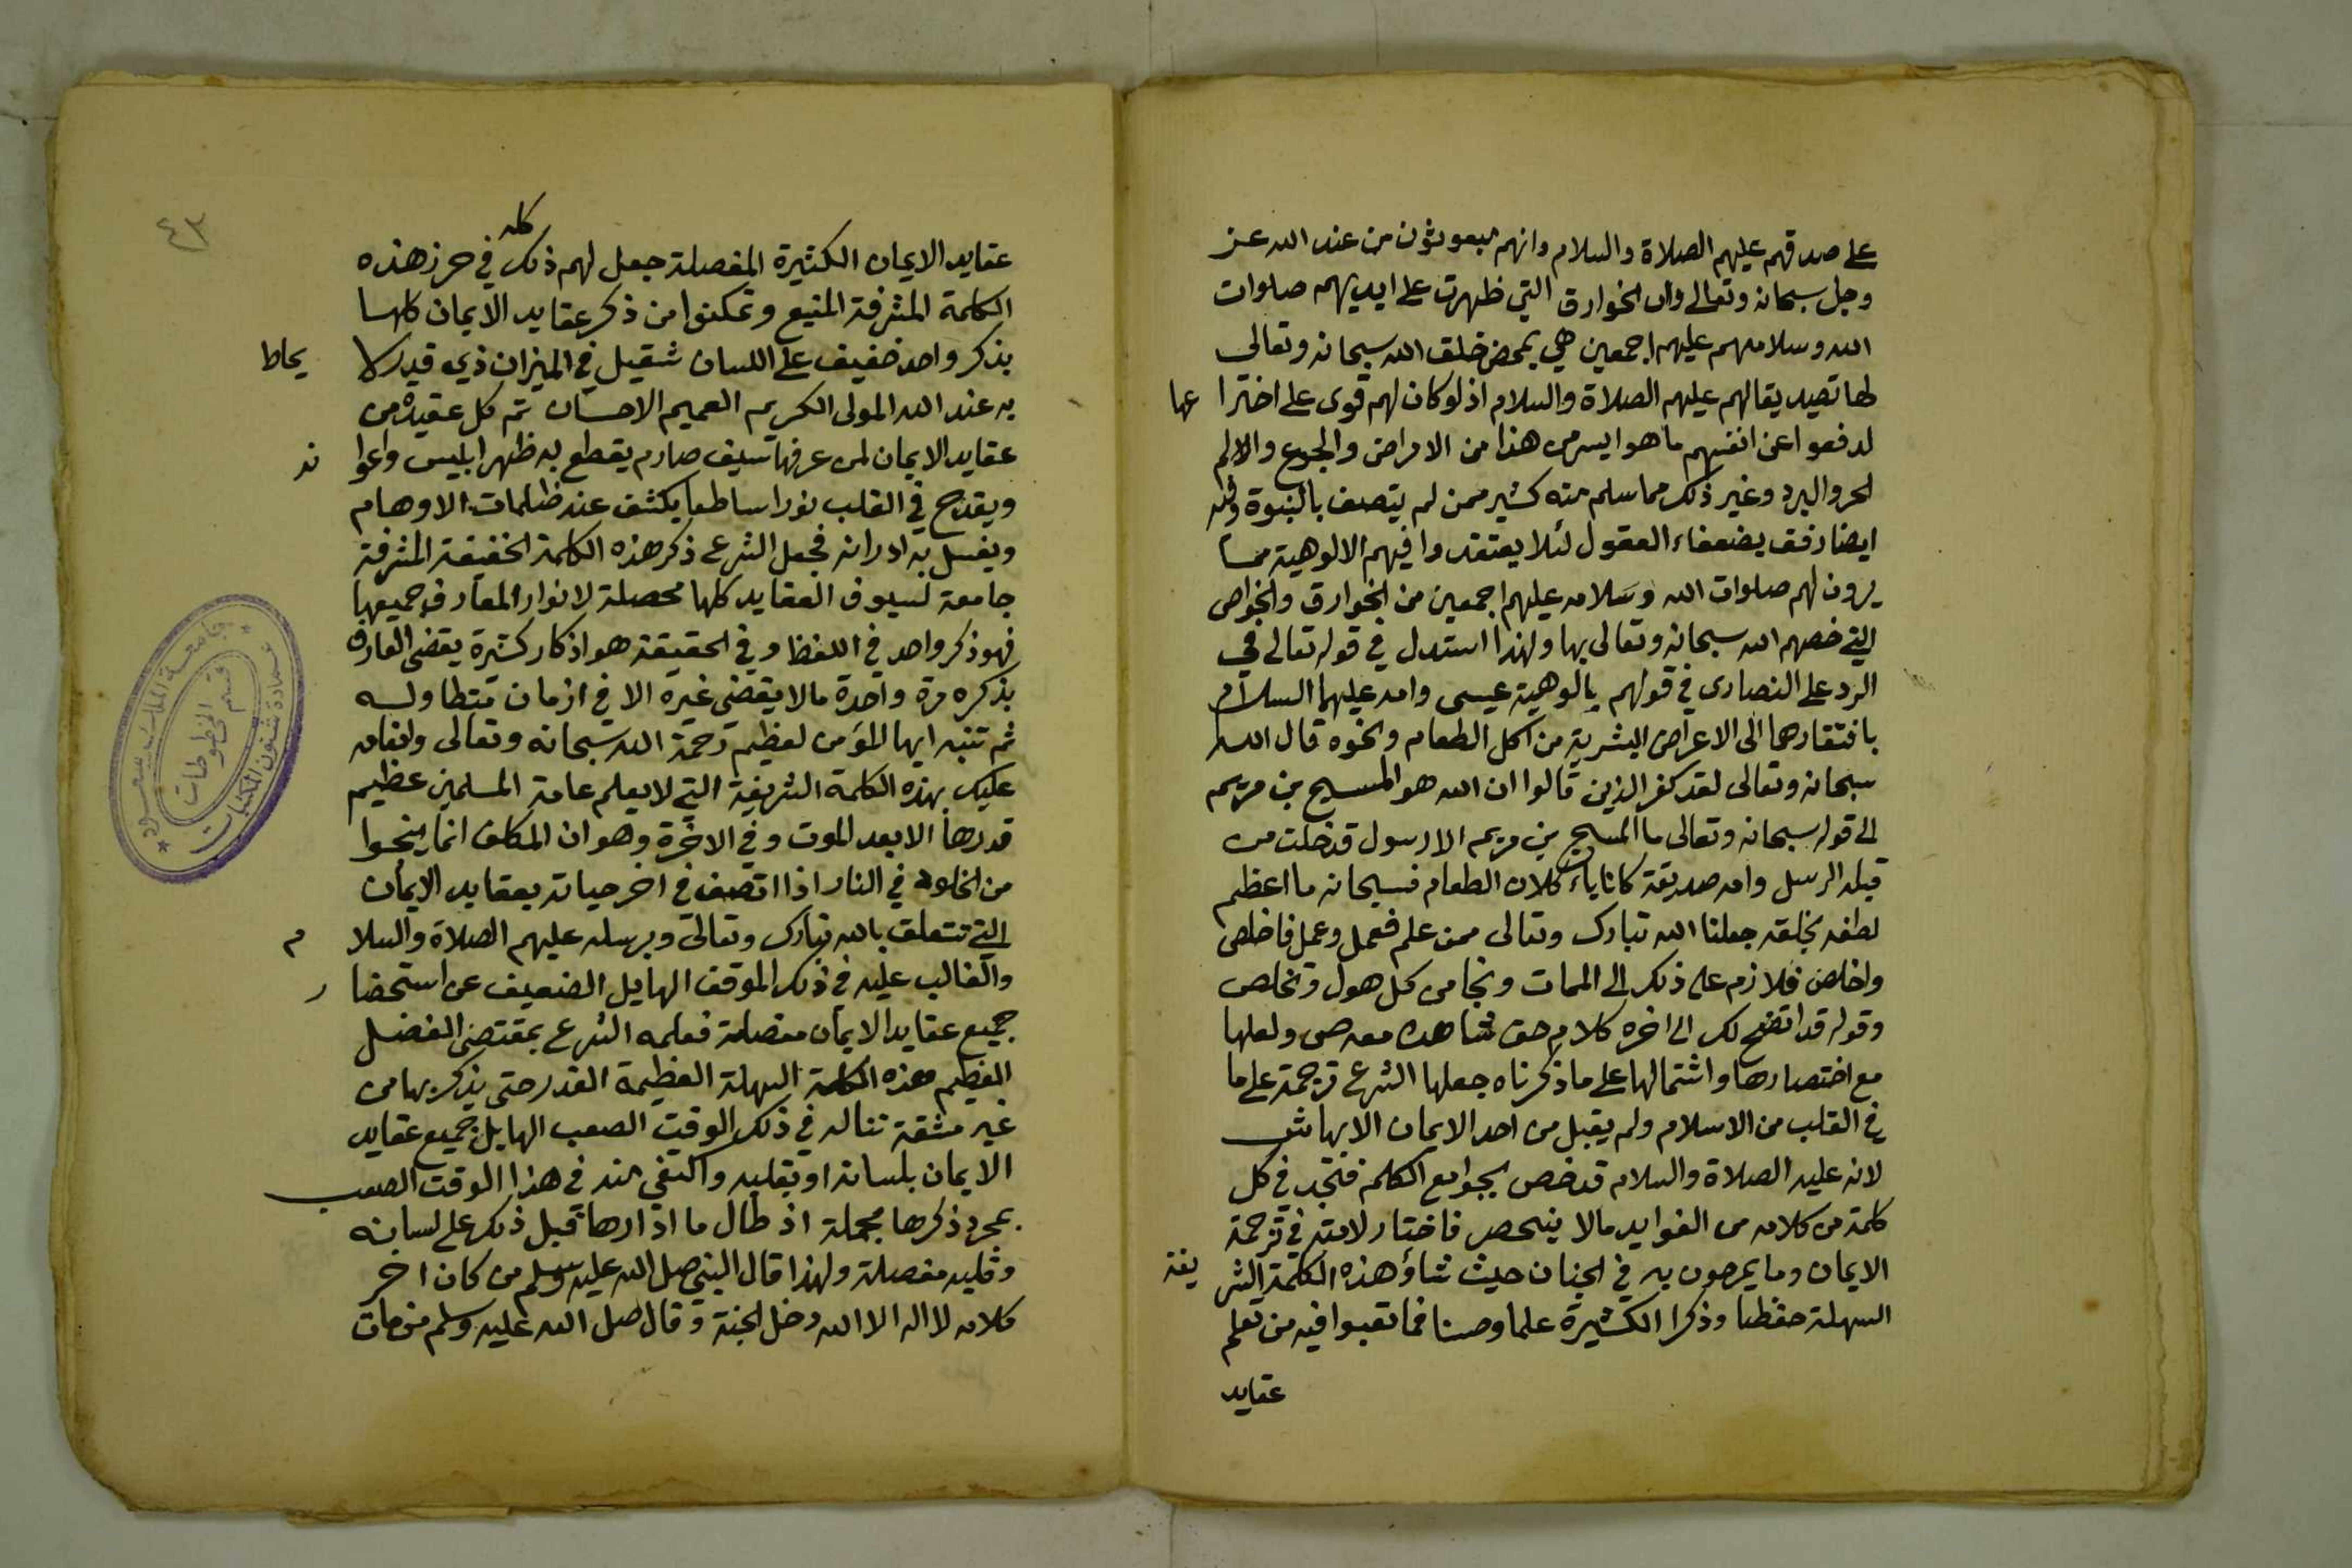 على صدقهم عليهم الصلاة والسلام وانهم مبعوثون من عند الله عز
وجل سبحانه وتعالى وان الخوارق التي ظهرت على ايديهم صلوات
الله وسلامهم عليهم اجمعين هي بمحض خلق الله سبحانه وتعالى
لها تصديقا لهم عليهم الصلاة والسلام اذ لو كان لهم قوى على اخترا عها
لدفعوا عن انفسهم ما هو ايسر من هذا من الامراض والجوع والالم
الحر والبرد وغير ذلك مما سلم منه كثير ممن لم يتصف بالنبوة وفيه
ايضا رفق بضعفاء العقول لئلا يعتقدوا فيهم الالوهية مما
يرون لهم صلوات الله وسلامه عليهم اجمعين من الخوارق والخواص
التي خصهم الله سبحانه وتعالى بها ولهذا استدل في قوله تعالى في
الرد على النصارى في قولهم بالوهية عيسى وامه عليهما السلام
بافتقارهما الى الاعراض البشرية من اكل الطعام ونحوه قال الله
سبحانه وتعالى لقد كفر الذين قالوا ان الله هو المسيح بن مريم
الى قوله سبحانه وتعالى ما المسيح بن مريم الا رسول قد خلت من
قبله الرسل وامه صديقة كانا ياء كلان الطعام فسبحانه ما اعظم
لطفه بخلقه جعلنا الله تبارك وتعالى ممن علم فعمل وعمل فاخلص
واخلص فلازم على ذلك الى الممات ونجا من كل هول وتخلص
وقوله قد اتضح لك الى اخره كلام حق شاهده معه ولعلها
مع اختصارها واشتمالها على ما ذكرناه جعلها الشرع ترجمة على ما
في القلب من الاسلام ولم يقبل من احد الايمان الا بها ش
لانه عليه الصلاة والسلام قد خص بجوامع الكلم فتجد في كل
كلمة من كلامه من الفوايد مالا ينحصر فاختار لامته في ترجمة
الايمان وما يمرحون به في الجنان حيث شاؤ هذه الكلمة الشر يفة
السهلة حفظا وذكرا الكثيرة علما وحسنا فما تعبوا فيه من تعلم
عقايد
٤٣
كله
عقايد الايمان الكثيرة المفصلة جعل لهم ذلك في حرز هذه
الكلمة المشرفة المنيع وتمكنوا من ذكر عقايد الايمان كلها
بذكر واحد خفيف على اللسان ثقيل في الميزان ذي قدر لا يحاط
به عند الله المولى الكريم العميم الاحسان ثم كل عقيدة من
عقايد الايمان لمن عرفها سيف صارم يقطع به ظهر ابليس واعوا نه
ويقدح في القلب نورا ساطعا يكشف عنه ظلمات الاوهام
ويغسل به ادرانه فجعل الشرع ذكر هذه الكلمة الخفيفة المشرفة
جامعة لسيوف العقايد كلها محصلة لانوار المعارف جميعها
فهو ذكر واحد في اللفظ وفي الحقيقة هو اذكار كثيرة يقضي العارف
بذكره مرة واحدة مالا يقضي غيره الا في ازمان متطاوله
ثم تنبه ايها المؤمن لعظيم رحمة الله سبحانه وتعالى وانعامه
عليك بهذه الكلمة الشريفة التي لا يعلم عامة المسلمين عظيم
قدرها الا بعد الموت وفي الاخرة وهو ان المكلف انما ينجوا
من الخلود في النار اذا اتصف في اخر حياته بعقايد الايمان
التي تتعلق بالله تبارك وتعالى وبرسله عليهم الصلاة والسلا م
والغالب عليه في ذلك الموقف الهايل الضعيف عن استحضا ر
جميع عقايد الايمان مفصلة فعلمه الشرع بمقتضى الفضل
العظيم هذه الكلمة السهلة العظيمة القدر حتى يذكر بها من
غير مشقة تناله في ذلك الوقت الصعب الهايل جميع عقايد
الايمان بلسانه او بقلبه واكتفى منه في هذا الوقت الصعب
بمجرد ذكرها مجملة اذ طال ما ادارها قبل ذلك على لسانه
وقلبه مفصلة ولهذا قال النبي صلى الله عليه وسلم من كان اخر
كلامه لا اله الا الله دخل الجنة وقال صلى الله عليه وسلم من مات
جامعة الملك سعود
عمادة شئون المكتبات
قسم المخطوطات